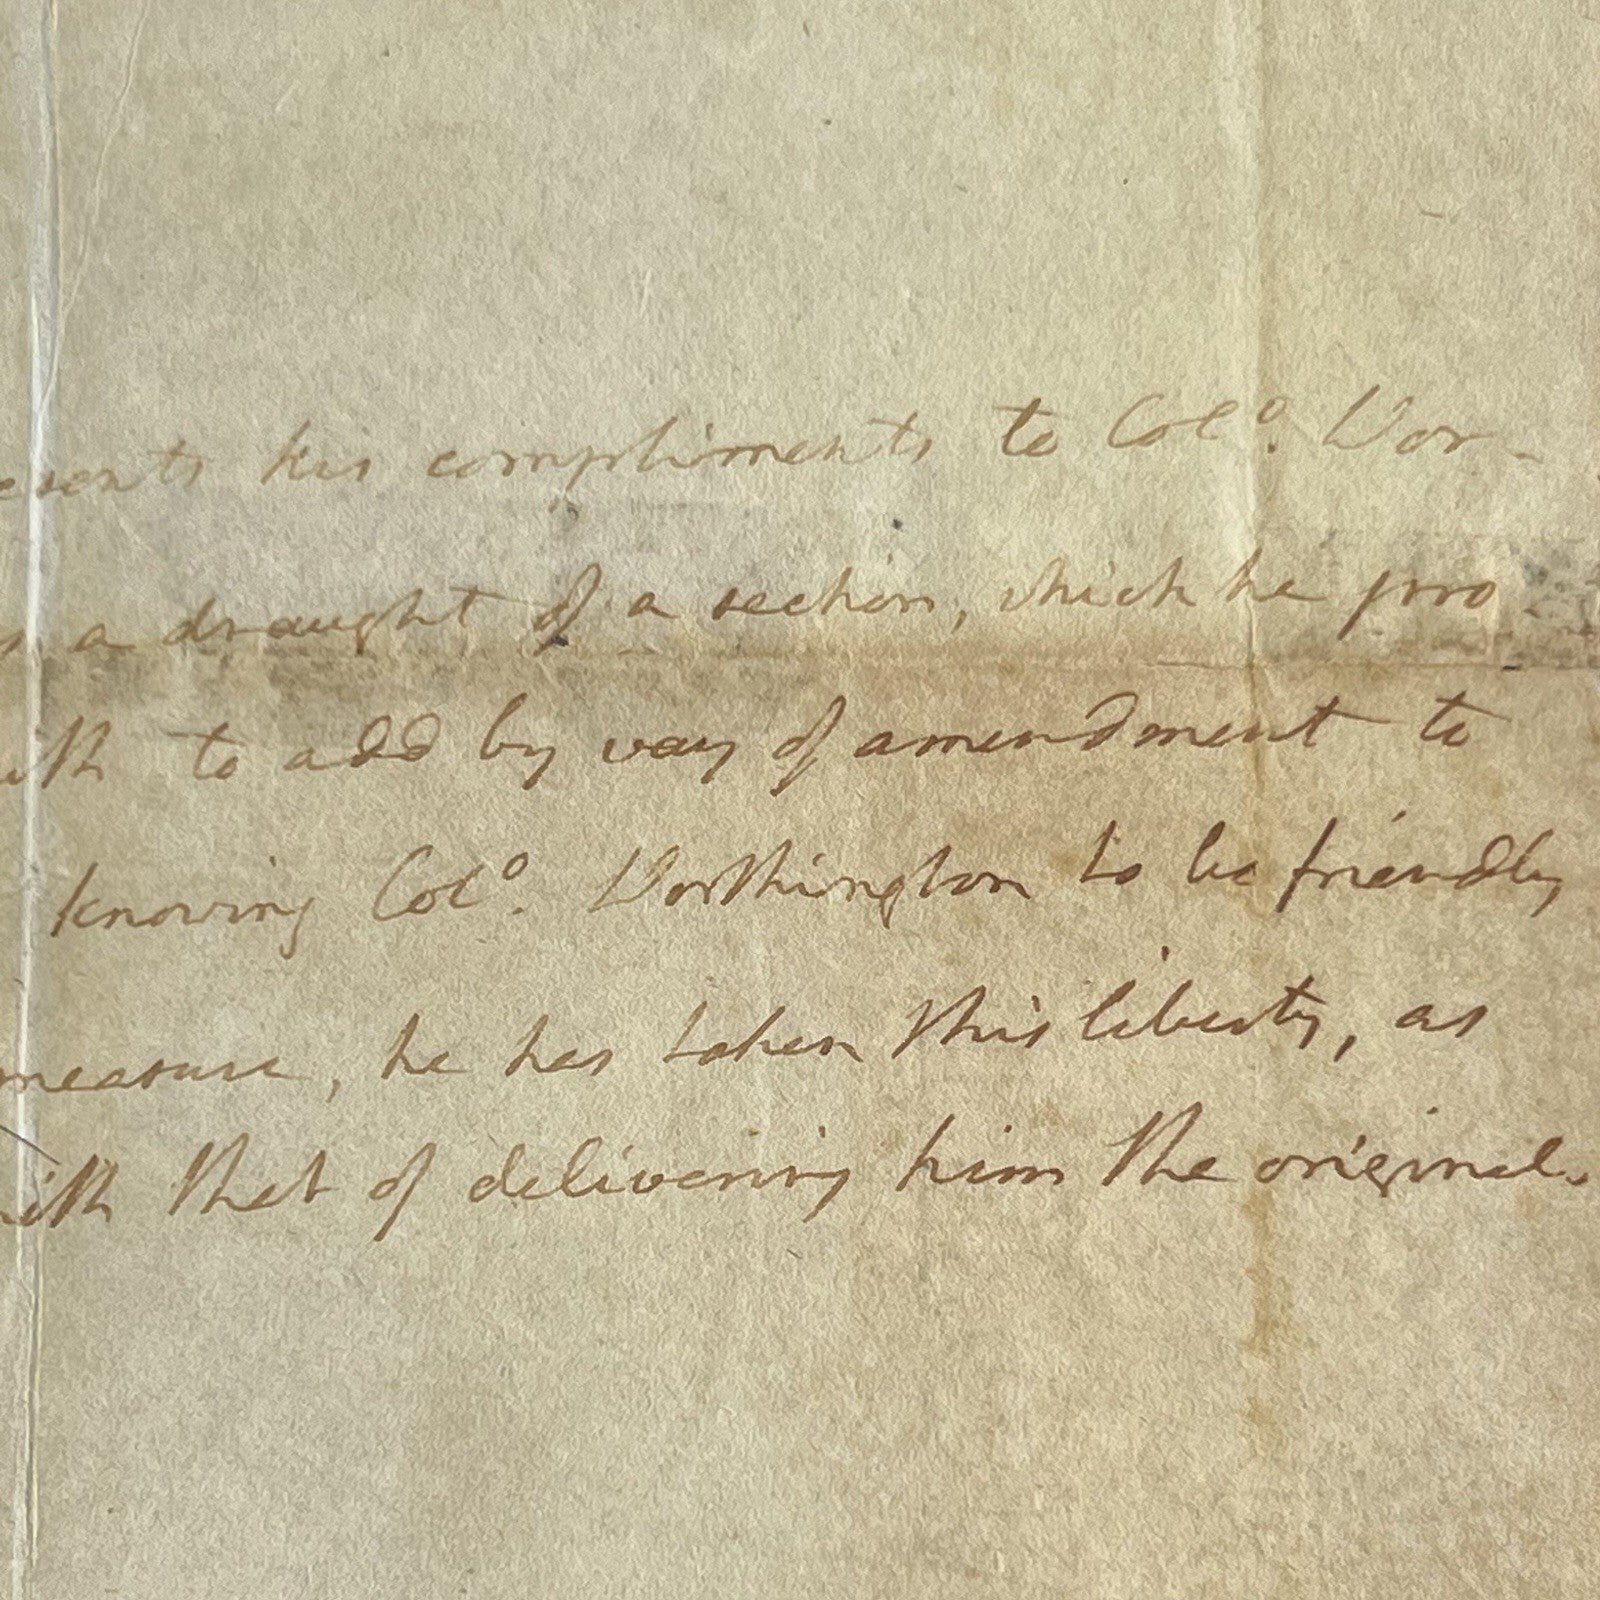 esents his compliments to Colº. Wor-
s a draught of a section, which he pro-
ith to add by way of amendment to
knowing Colº. Worthington to be friendly
measure, he has taken this liberty, as
ith that of delivering him the original.